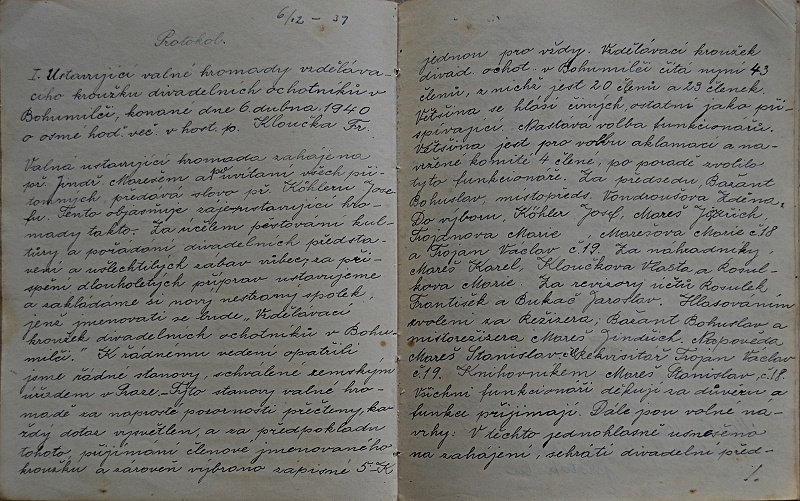 6/12 – 37
Protokol.
I. Ustavující valné hromady vzděláva-
cího kroužku divadelních ochotníků v
Bohumilči, konané dne 6. dubna 1940
o osmé hod. več. v host. p. Kloučka Fr.
Valná ustavující hromada zahájena
př. Jindř. Marešem a po uvítání všech pří-
tomných, předává slovo př. Köhleru Jose-
fu. Tento objasňuje ustavující hro-
mady takto: Za účelem pěstování kul-
tury a pořádání divadelních předsta-
vení a ušlechtilých zábav vůbec, za při-
spění dlouholetých příprav ustavujeme
a zakládáme si nový nestraný spolek,
jenž jmenovati se bude „Vzdělávací
kroužek divadelních ochotníků v Bohu-
milči." K řádnému vedení opatřili
jsme řádné stanovy, schválené zemským
úřadem v Praze. Tyto stanovy valné hro-
madě za naprosté pozornosti přečteny, ka-
ždý dotaz vysvětlen, a za předpokladu
tohoto, přijímáni členové jmenovaného
kroužku a zároveň vybráno zápisné 5 K
jednou pro vždy. Vzdělávací kroužek
divad. ochot. v Bohumilči čítá nyní 43
členů, z nichž jest 20 členů a 23 členek.
Většina se hlásí činných, ostatní jako při-
spívající. Nastává volba funkcionářů.
Většina jest pro volbu aklamací a na-
vržené komité 4 člené, po poradě zvolilo
tyto funkcionáře. Za předsedu, Bažant
Bohuslav, místopředs. Vondroušova Zdena,
Do výboru, Köhler Josef, Mareš Jindřich,
Trojanova Marie, Marešova Marie č. 18
a Trojan Václav č. 19. Za náhradníky,
Mareš Karel, Kloučkova Vlasta, a Kosul-
kova Marie. Za revizory účtů Kosulek
František a Bukač Jaroslav. Hlasováním
zvoleni za Režizéra, Bažant Bohuslav, a
místorežizéra Mareš Jindřich. Napověda
Mareš Stanislav. Rekvisitář Trojan Václav
č. 19. Knihovníkem Mareš Stanislav, č. 18.
Všichni funkcionáři děkují za důvěru a
funkce přijímají. Dále jsou volné ná-
vrhy: V těchto jednohlasně usneseno
na zahájení, sehráti divadelní před-